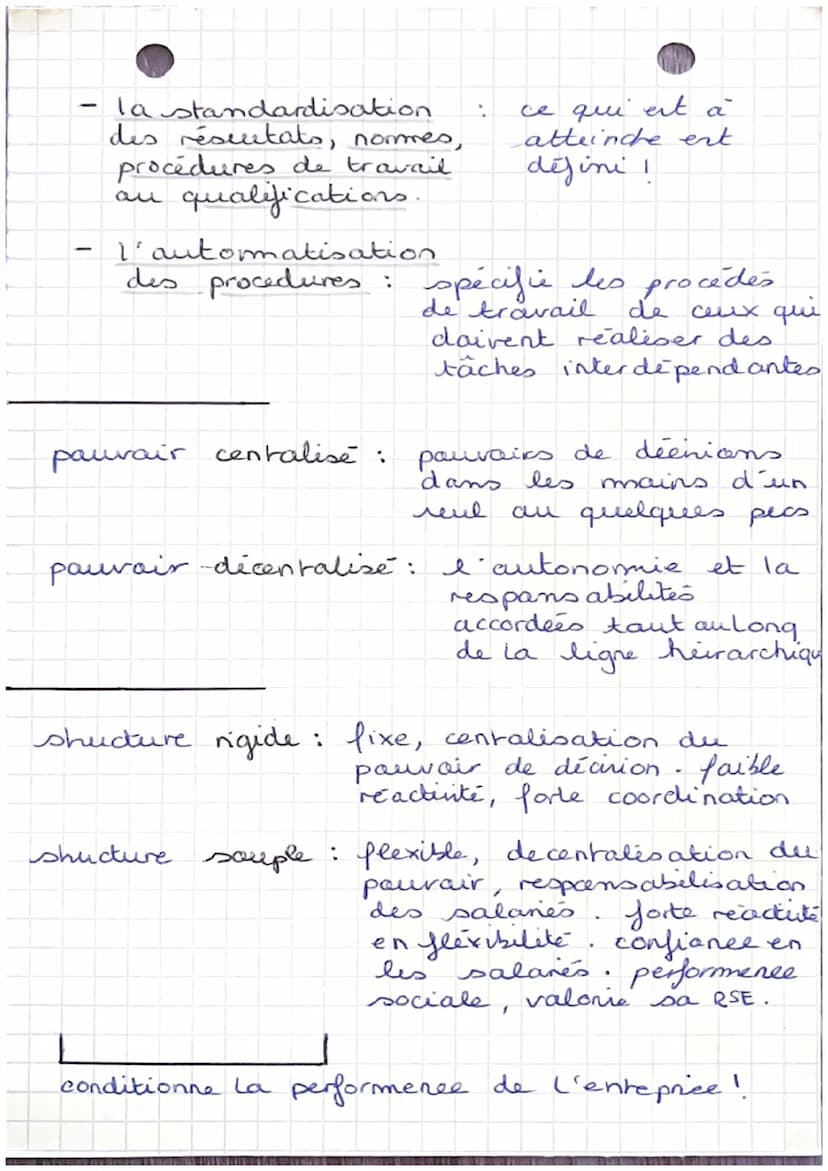 - la standardisation : ce qui est à
des résultats, normes, atteindre est
procédures de travail défini !
ou qualifications.
- l'automatisation
des procedures : spécifie les procédés
de travail de ceux qui
doivent réaliser des
tâches interdépendantes
pouvoir centralisé : pouvoirs de décisions
dans les mains d'un
seul ou quelques pers
pouvoir décentralisé : l'autonomie et la
responsabilités
accordées tout au long
de la ligne héirarchiqu
structure rigide : fixe, centralisation du
pouvoir de décision. faible
réactivité, forte coordination
structure souple : flexible, decentralisation du
pouvoir, responsabilisation
des salariés. forte réactivité
en fléxibilité. confiance en
les salariés. performence
sociale, valorie sa RSE.
conditionne la performence de l'entreprise !